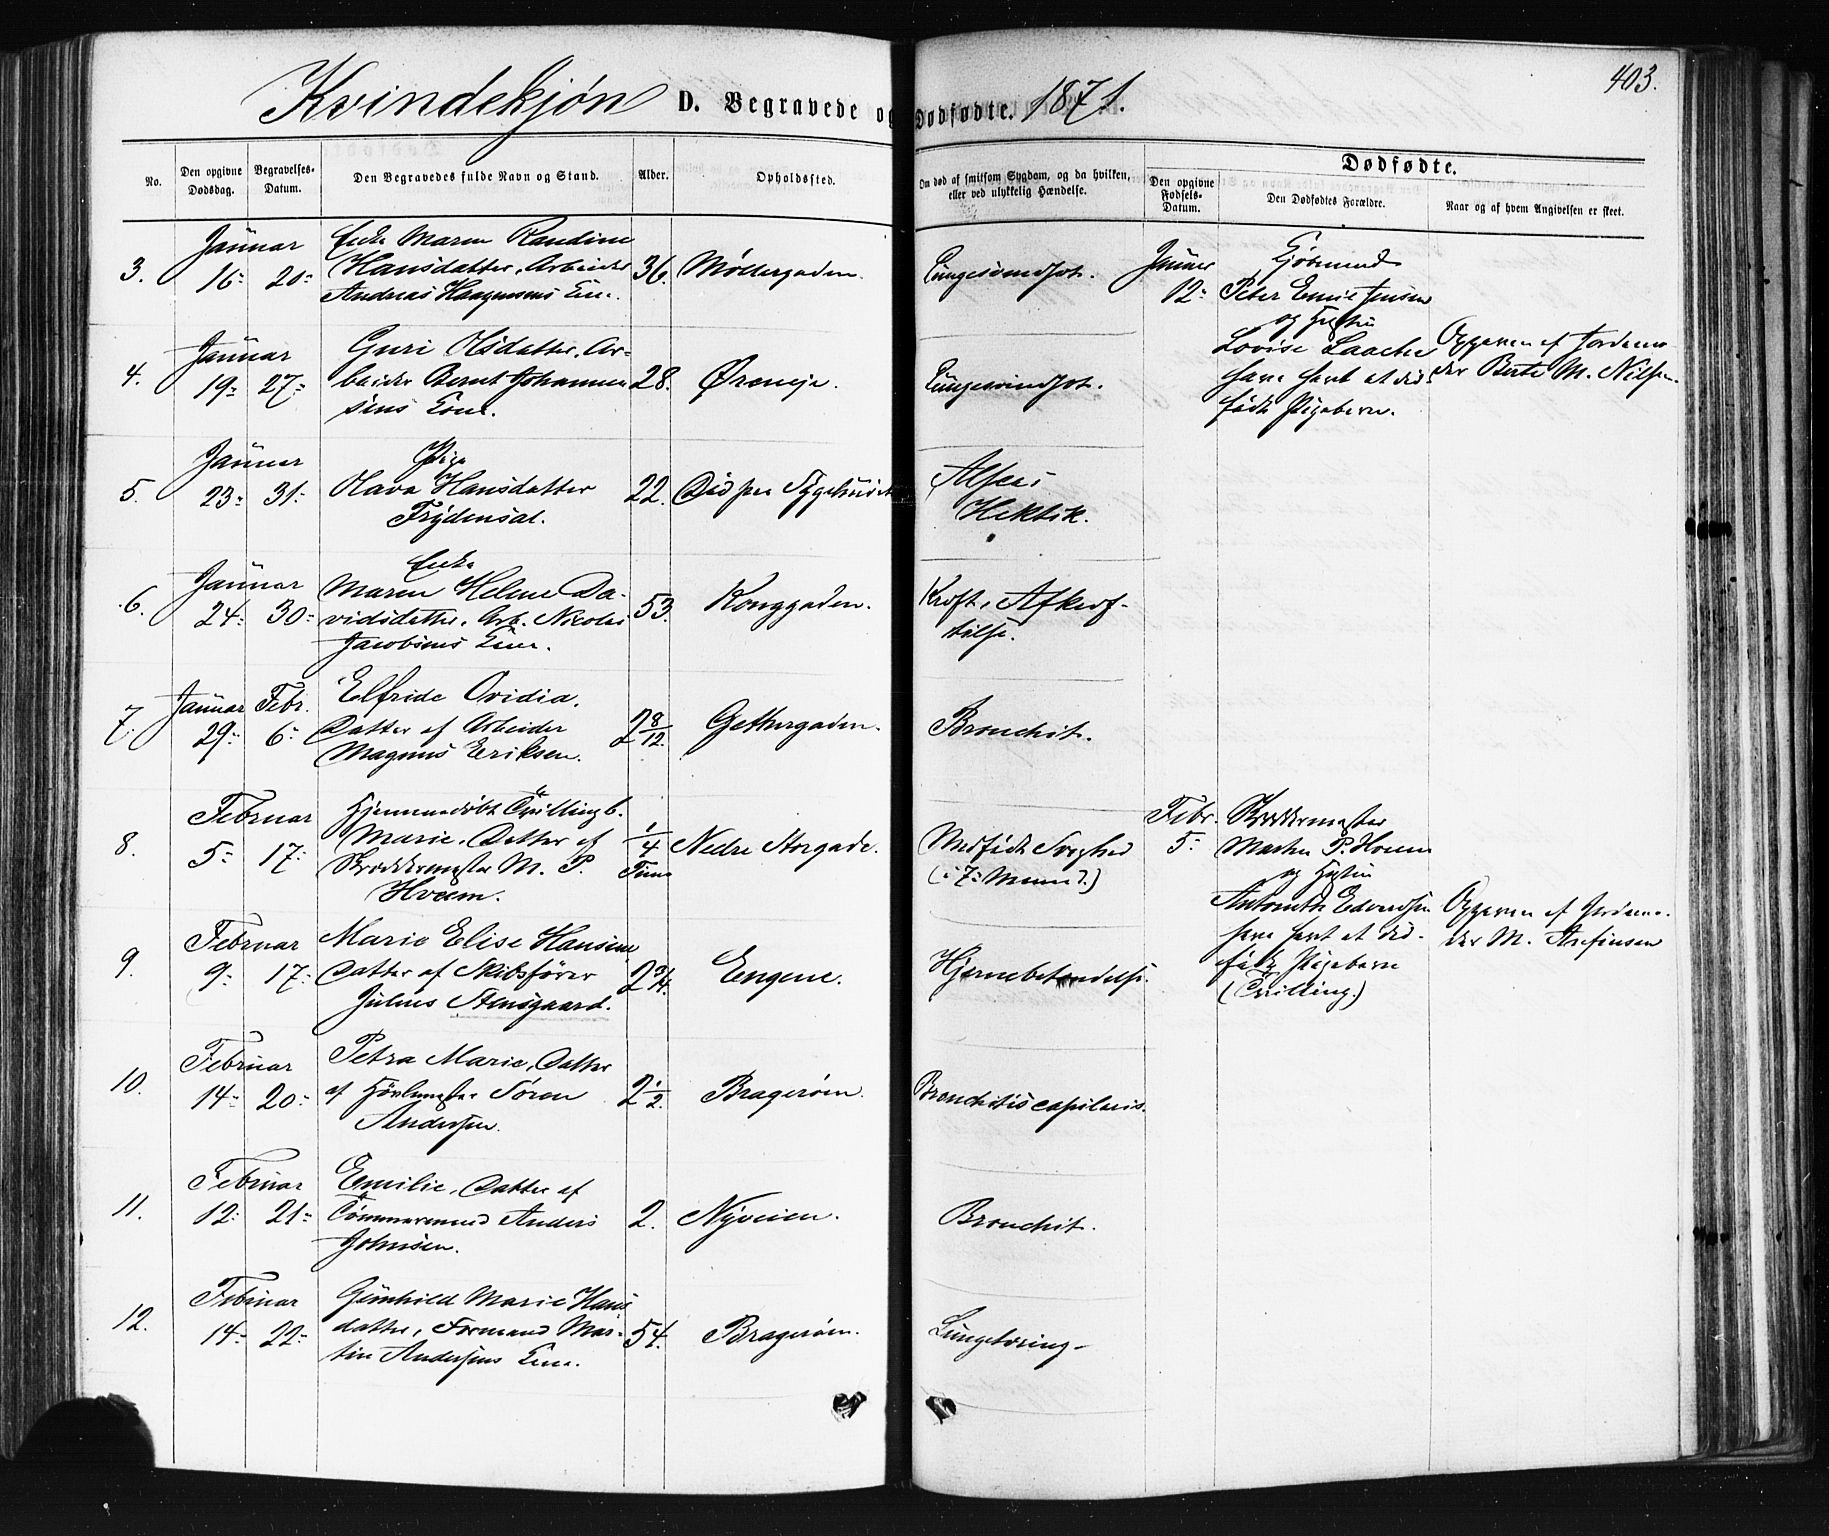 403.
Kvindekjøn D. Begravede og Dødfødte. 1871.
No.
Den opgivne Dødsdag.
Begravelses-Datum.
Den Begravedes fulde Navn og Stand.
Alder.
Opholdssted.
Om død af smitsom Sygdom, og da hvilken,
eller ved ulykkelig Hændelse.
Dødfødte.
Den opgivne Fødsels-Datum.
Den Dødfødtes Forældre.
Naar og af hvem Angivelsen er skeet.
3.
Januar
16- 20-
Enke Maren Randine
Hansdatter, Arbeider
Andreas Haagensens Enke.
36.
Møllergaden.
Januar
12-
Peter Emil Jensen
og Hustru
Lovise Laache
have havt et død-
født Pigebarn.
Opgaven af Jordemo-
der Berte M. Nilsen.
4.
Januar
19- 27-
Guri Olsdatter, Ar-
beider Bernt Johannes-
sens Kone.
28.
Øreneje.
5.
Januar
23- 31-
Pige
Olava Hansdatter
Frydensal.
22.
Død paa Sygehuset
Hektik.
6.
Januar
24- 30-
Enke
Maren Helene Da-
vidsdatter, Arb. Nicolai
Jacobsens Enke.
53.
Konggaden.
Kræft, Afkræf-
telse.
7.
Januar Febr.
29- 6-
Elfride Ovidia,
Datter af Arbeider
Magnus Eriksen.
2 8/12.
Gethergaden.
Bronchit.
8.
Februar
5- 17-
Hjemmedøbt Tvillingb.
Marie, Datter af
Skræddermester M. P.
Hveem.
1/4
Time
Nedre Storgade.
Medfødt Svaghed
(i 7- Maaned.)
Febr.
5-
Skræddermester
Marten P. Hveem
og Hustru
have havt et død-
født Pigebarn
(Tvilling.)
Opgaven af Jordemo-
der M. Arefinsen
9.
Februar
9- 17-
Marie Elise Hansine
Datter af Skibsfører
Julius Stensgaard.
2 3/4.
Engene.
Hjernebetændelse.
10.
Februar
14- 20-
Petra Marie, Datter
af Søren
Andersen.
2 1/2.
Bragerøen.
Bronchitis capilaris.
11.
Februar
12- 21-
Emilie, Datter af
Tømmermand Anders
Johnsen.
2.
Nyveien.
Bronchit.
12.
Februar
14- 22-
Gunhild Marie Hans
datter, Formand Mar-
tin Andersens Enke.
54.
Bragerøen.
Lungetæring-